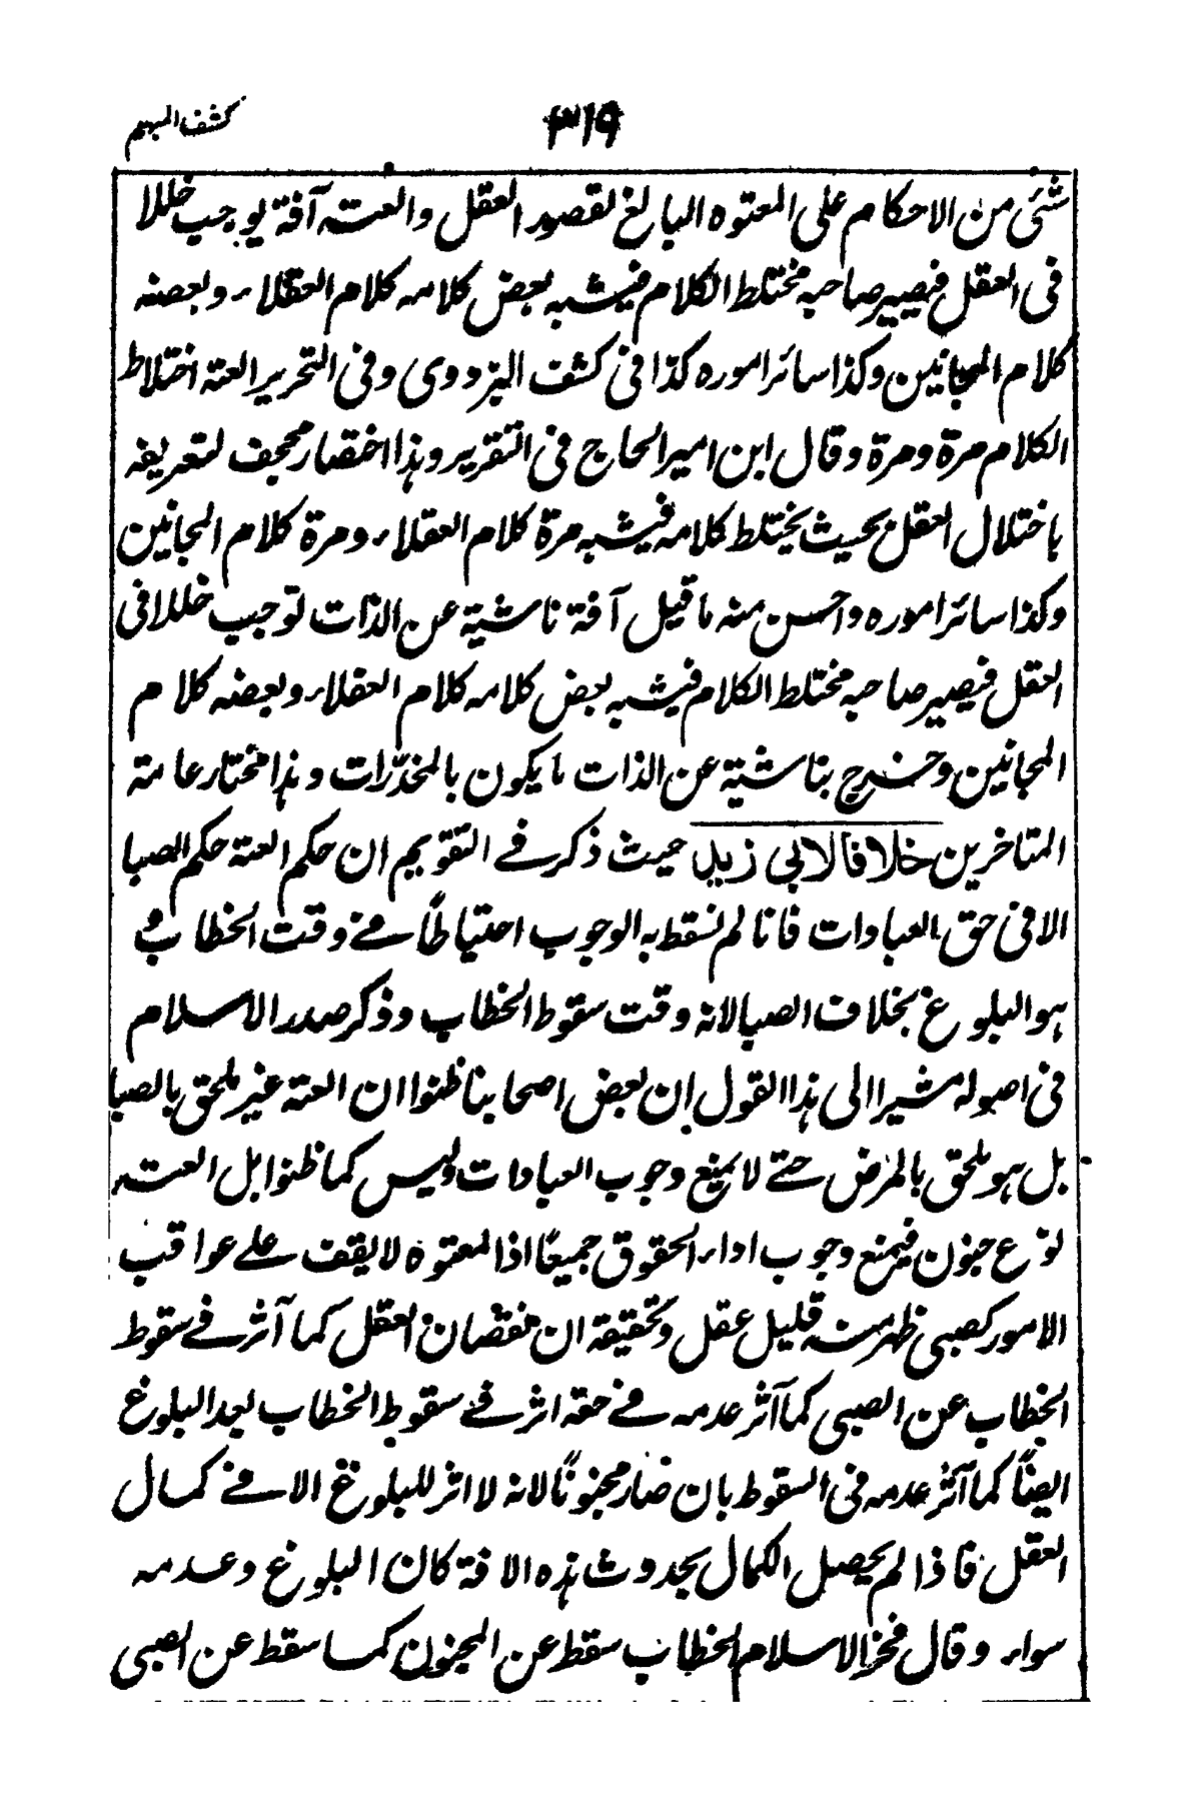 کشف المبہم
۳۱۹
شئی من الاحکام علی المعتوہ البالغ لقصور العقل والعتہ آفة یوجب خللا
فی العقل فیصیر صاحبہ مختلط الکلام فیشبہ بعض کلامہ کلام العقلاء وبعضہ
کلام المجانین وکذا سائر امورہ کذا فی کشف البزدوی وفی التحریر العتہ اختلاط
الکلام مرة ومرة وقال ابن امیر الحاج فی التقریر وہذا اختصار مجحف لتعریفہ
باختلال العقل بحیث یختلط کلامہ فیشبہ مرة کلام العقلاء ومرة کلام المجانین
وکذا سائر امورہ واحسن منہ ما قیل آفة ناشیة عن الذات توجب خللا فی
العقل فیصیر صاحبہ مختلط الکلام فیشبہ بعض کلامہ کلام العقلاء وبعضہ کلام
المجانین وخرج بناشیة عن الذات ما یکون بالمخدّرات وہذا مختار عامة
المتاخرین خلافا لابی زید حیث ذکر فے التقویم ان حکم العتة حکم الصبا
الا فی حق العبادات فانا لم نسقط بہ الوجوب احتیاطًا فے وقت الخطاب و
ہو البلوغ بخلاف الصبا لانہ وقت سقوط الخطاب وذکر صدر الاسلام
فی اصولہ مشیرا الی ہذا القول ان بعض اصحابنا ظنوا ان العتة غیر ملحق بالصبا
بل ہو ملحق بالمرض حتے لا یمنع وجوب العبادات ولیس کما ظنوا بل العتہ
نوع جنون فیمنع وجوب اداء الحقوق جمیعًا اذ المعتوہ لا یقف علے عواقب
الامور کصبی ظہر منہ قلیل عقل وتحقیقة ان نقصان العقل کما آثر فے سقوط
الخطاب عن الصبی کما آثر عدمہ فے حقہ اثر فے سقوط الخطاب بعد البلوغ
ایضًا کما آثر عدمہ فی السقوط بان صار مجنونًا لانہ لا اثر للبلوغ الا فے کمال
العقل فاذا لم یحصل الکمال بحدوث ہذہ الافة کان البلوغ وعدمہ
سواء وقال فخر الاسلام الخطاب سقط عن المجنون کما سقط عن الصبی